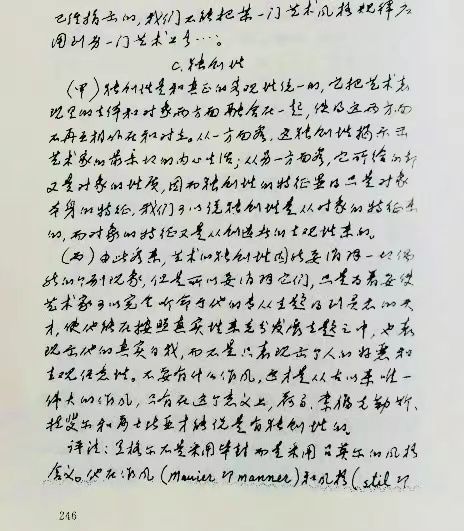 已经指出的，我们不能把某一门艺术风格规律应
用到另一门艺术上去…。
c.独创性
（甲）独创性是和真正的客观性统一的，它把艺术表
现里的主体和对象两方面融合在一起，使得这两方面
不再互相外在和对立。从一方面看，这独创性揭示出
艺术家的最亲切的内心生活；从另一方面看，它所给的却
又是对象的性质，因而独创性的特征显得只是对象
本身的特征，我们可以说独创性是从对象的特征来
的，而对象的特征又是从创造者的主观性来的。
（丙）由此看来，艺术的独创性固然要消除一切偶
然的个别现象，但是所以要消除它们，只是为着要使
艺术家可以完全听命于他的专从主题得到灵感的天
才，使他能在按照真实性来充分发展主题之中，也表
现出他的真实自我，而不是只表现出个人的好恶和
主观任意性。不要有什么作风，这才是从古以来唯一
伟大的作风，只有在这个意义上，荷马、索福克勒斯、
拉斐尔和莎士比亚才能说是有独创性的。
评注：黑格尔不是采用毕封而是采用吕莫尔的风格
含义。他在作风（Manier 即 manner）和风格（stil 即
246